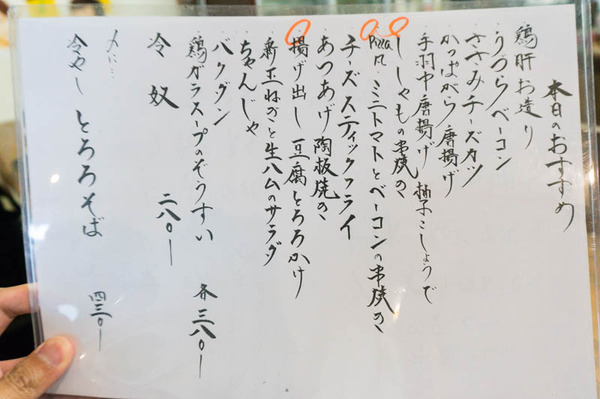 本日のおすすめ
鶏肝お造り
うづらベーコン
ささみチーズカツ
かっぱがら唐揚げ
手羽中唐揚げ 柚子こしょうで
ししゃもの串焼き
Pizza風 ミニトマトとベーコンの串焼き
チーズスティックフライ
あつあげ陶板焼き
揚げ出し豆腐とろろかけ
新玉ねぎと生ハムのサラダ
ちゃんじゃ
バクダン
鶏ガラスープのぞうすい 各三八〇ー
冷奴 二八〇ー
〆に…
冷やしとろろそば 四三〇ー